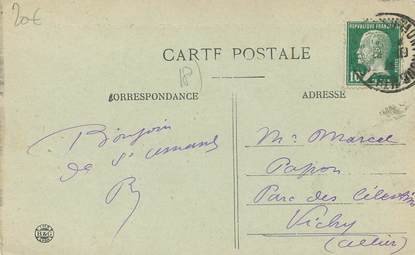 20€
CARTE POSTALE
(18)
CORRESPONDANCE
ADRESSE
REPUBLIQUE FRANCAISE
10
Bonjour
de St Amand
B
Mr Marcel
Papon
Parc des Célestins
Vichy
(Allier)
B&G